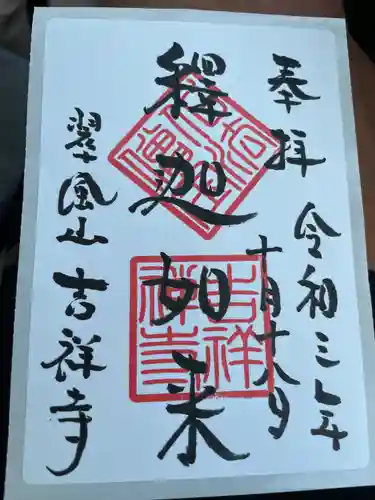 奉拝
令和三年
十月十八日
釋迦如来
翠風山 吉祥寺
吉祥寺